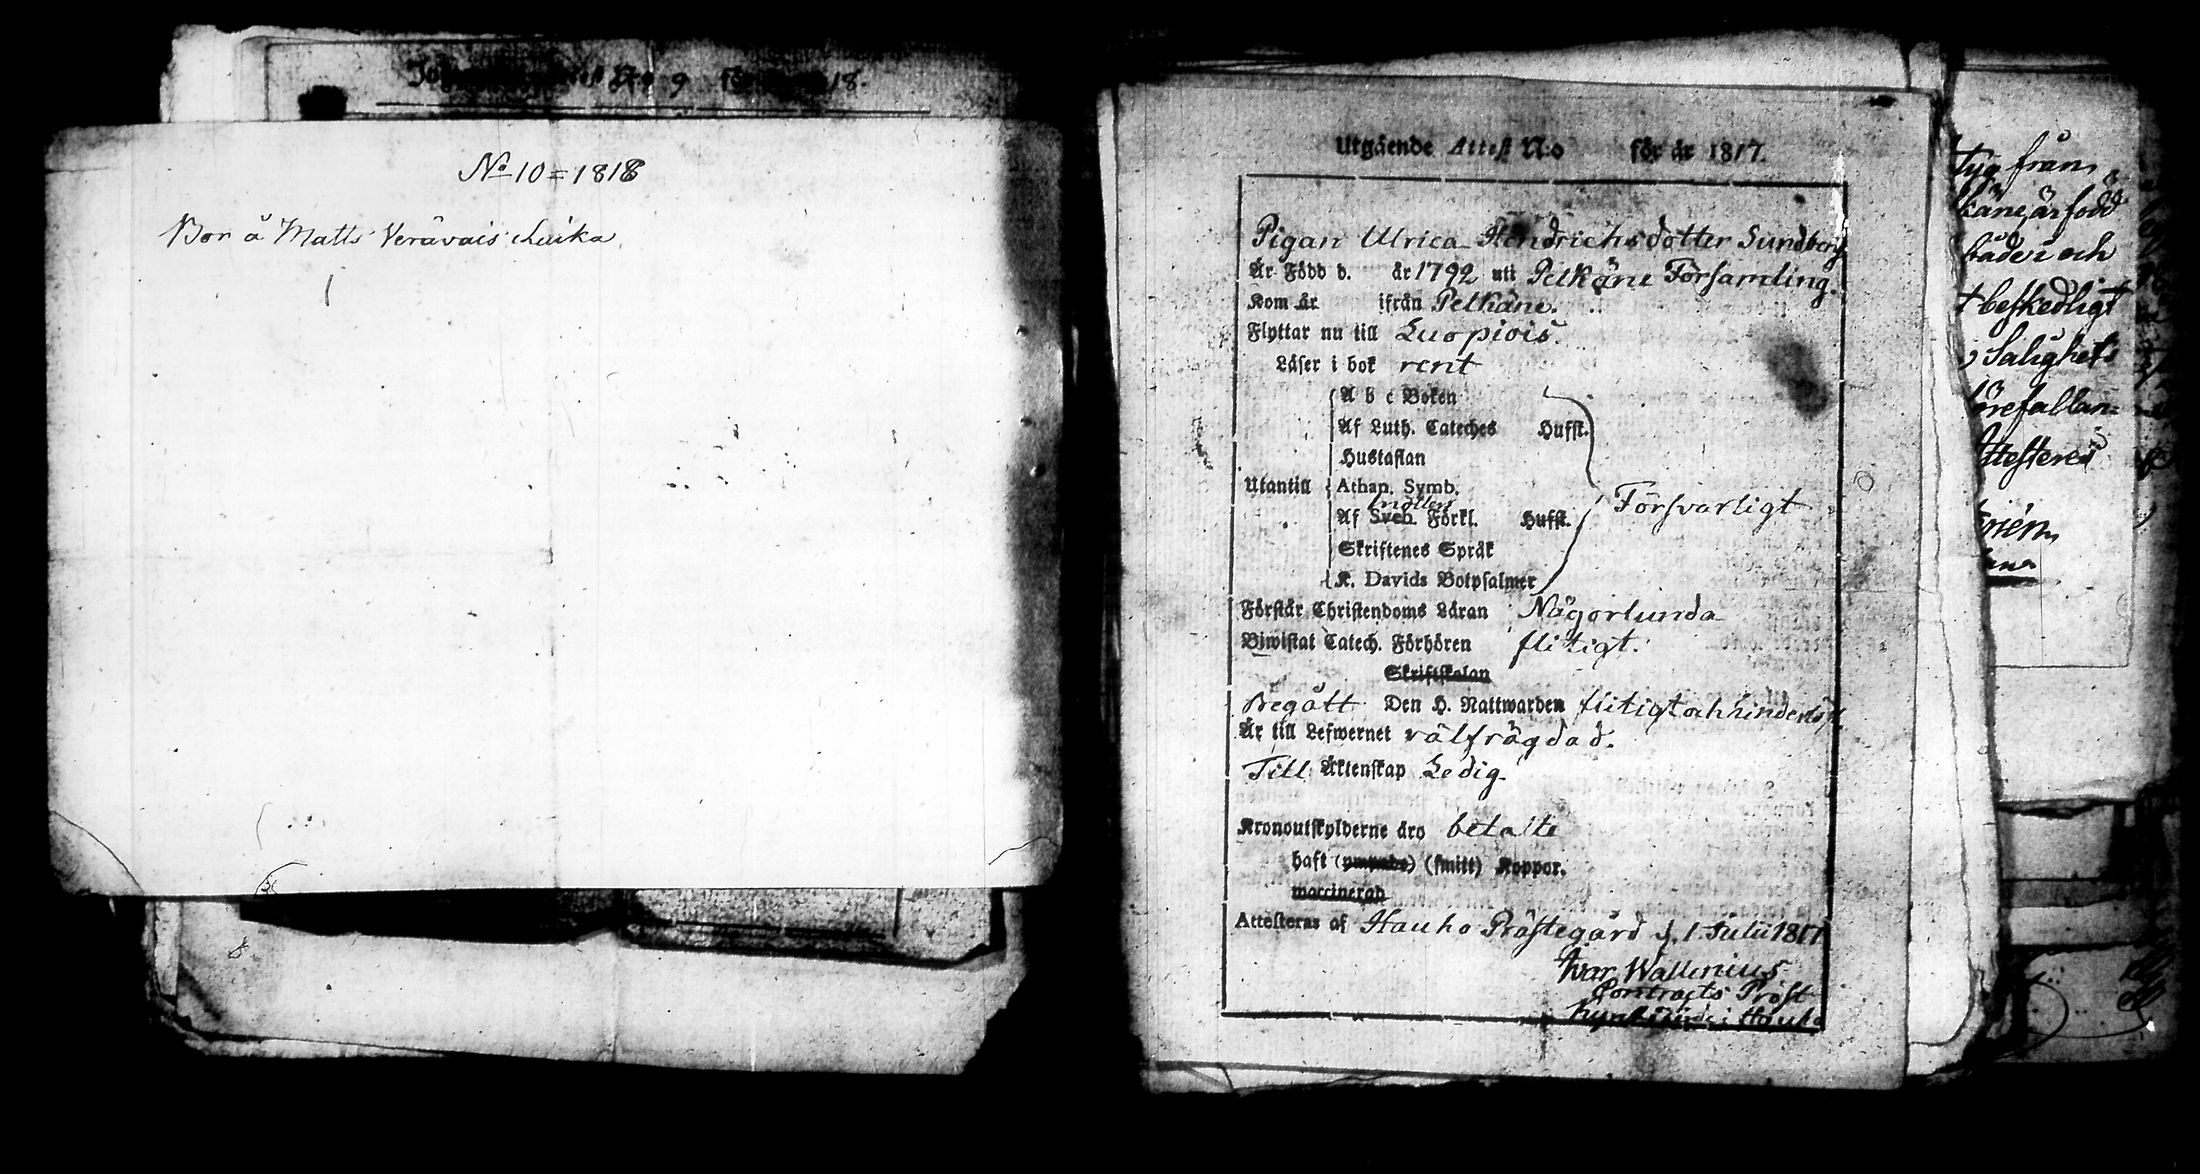 No 9
18.
No 10 = 1818
Bor å Matts
Utgående Attest N:o för år 1817.
Pigan Ulrica Hendrichsdotter Sundberg
Är Född d. år 1792 uti Pelkäne Församling.
Kom år ifrån Pelkäne.
Flyttar nu till Luopiois.
Läser i bok rent
A b c Boken
Af Luth. Cateches Hufst.
Hustaflan
Utantill Athan. Symb.
Af Sveb. Förkl. Hufst. Försvarligt
Skriftenes Språk
K. Davids Botpsalmer
Förstår Christendoms Läran Någorlunda
Biwistat Catech. Förhören flitigt.
Skriftskolan
Begått Den H. Nattwarden flitigt och
Är till Lefwernet välfrägdad.
Till Äktenskap Ledig.
Kronoutskylderne äro betalte
haft (ympade) (smitt) Koppor.
waccinerad
Attesteras af Hauho Prästegård d. 1. Julii 1817
Ivar Wallenius
Contracts Prost
Kyrkoherde i Hauho
tyg från
käne, är född
både i och
t beskedligt
Salighets
örefallan=
Attesteras
8.